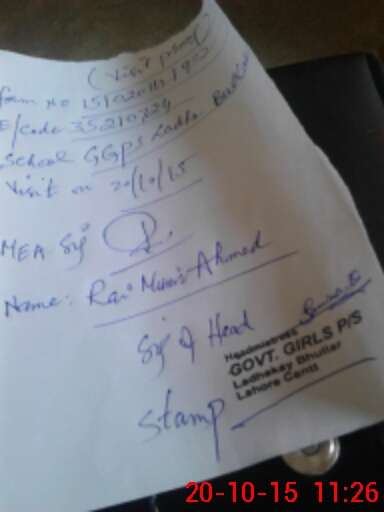 (Visit proof)
Form No 15102011
E/Code 35210724
School GGPS Ladhe
Visit on 20/10/15
MEA Sig
Name: Rai Munir Ahmed
Sig of Head
Headmistress
GOVT. GIRLS P/S
Ladhekay Bhullar
Lahore Cantt
Stamp
20-10-15 11:26